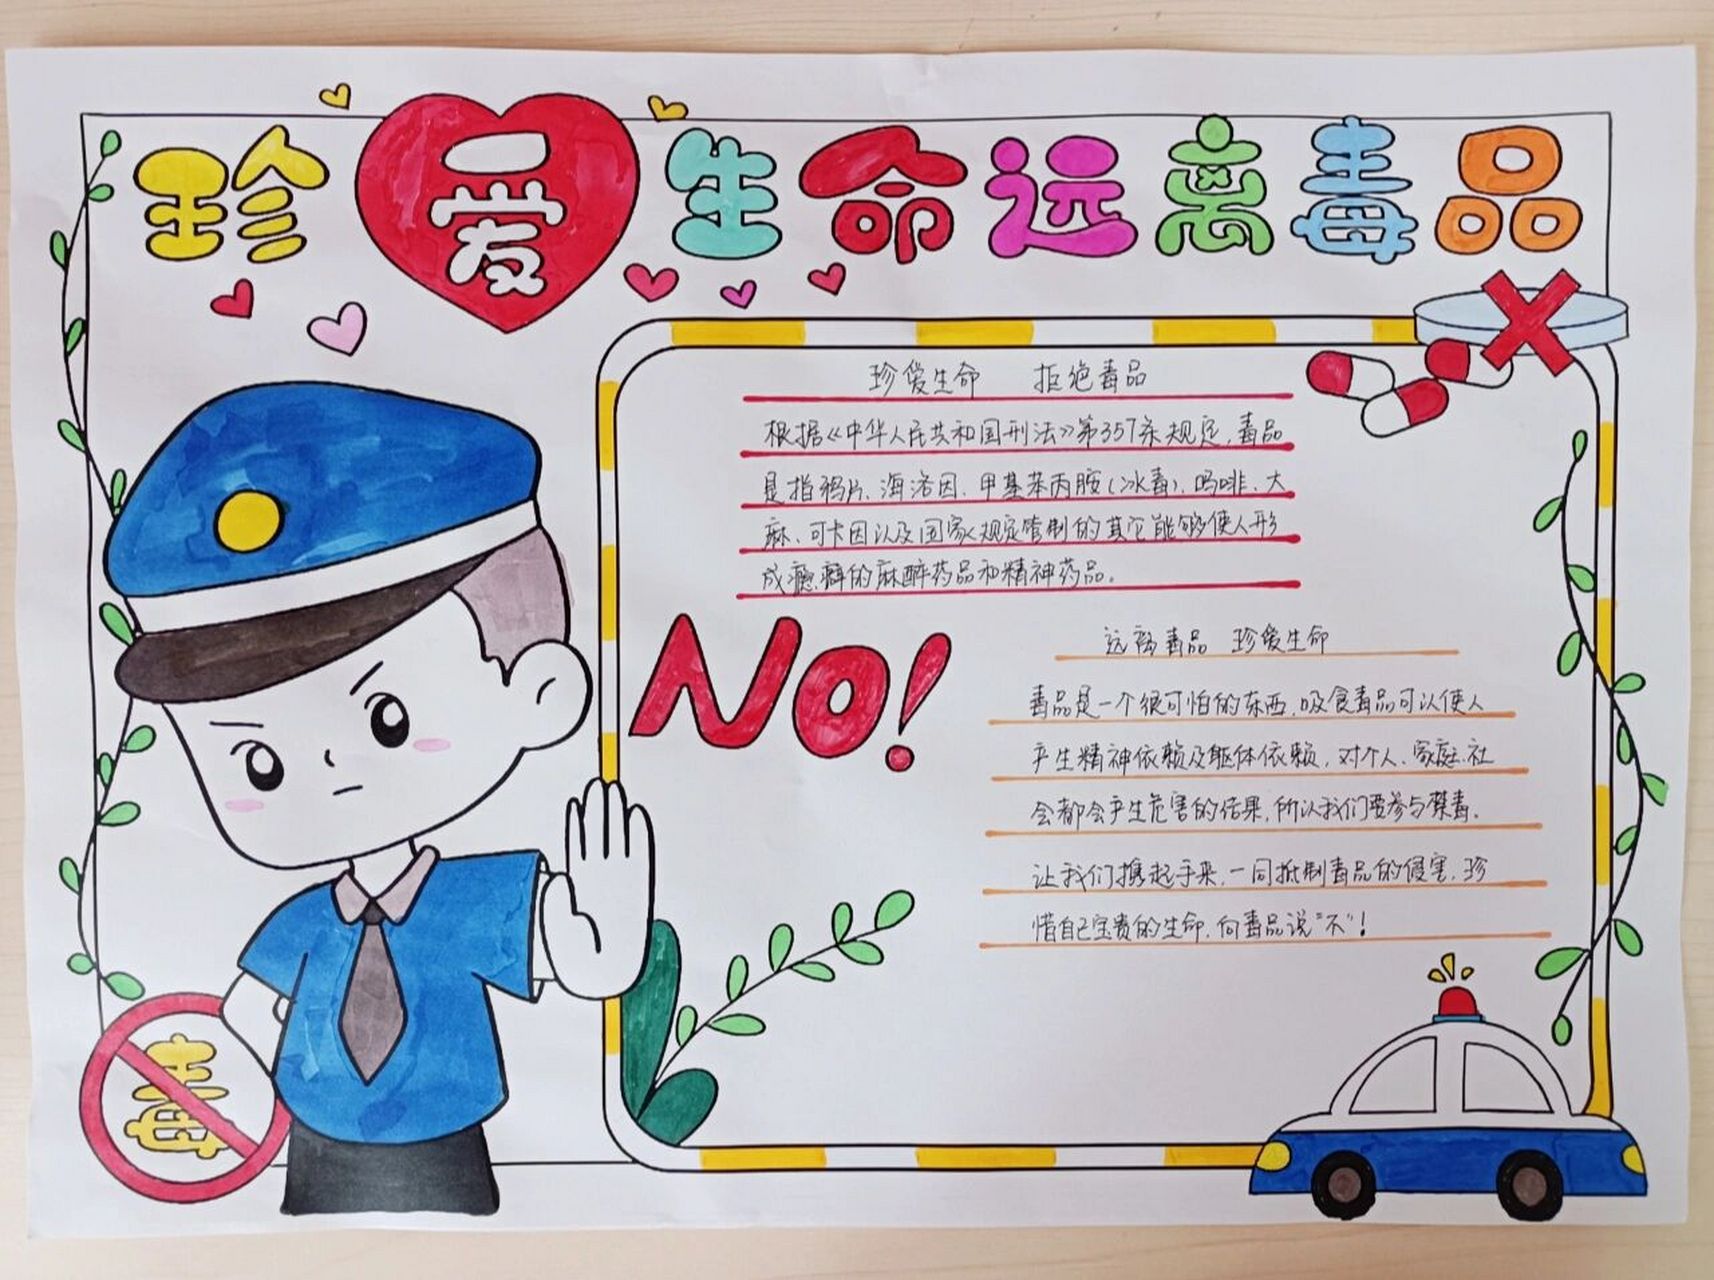 珍爱生命远离毒品
珍爱生命 拒绝毒品
根据《中华人民共和国刑法》第357条规定,毒品
是指鸦片、海洛因、甲基苯丙胺(冰毒)、吗啡、大
麻、可卡因以及国家规定管制的其它能够使人形
成瘾癖的麻醉药品和精神药品。
NO!
远离毒品 珍爱生命
毒品是一个很可怕的东西,吸食毒品可以使人
产生精神依赖及躯体依赖,对个人、家庭、社
会都会产生危害的结果,所以我们要参与禁毒.
让我们携起手来,一同抵制毒品的侵害,珍
惜自己宝贵的生命,向毒品说"不"!
毒